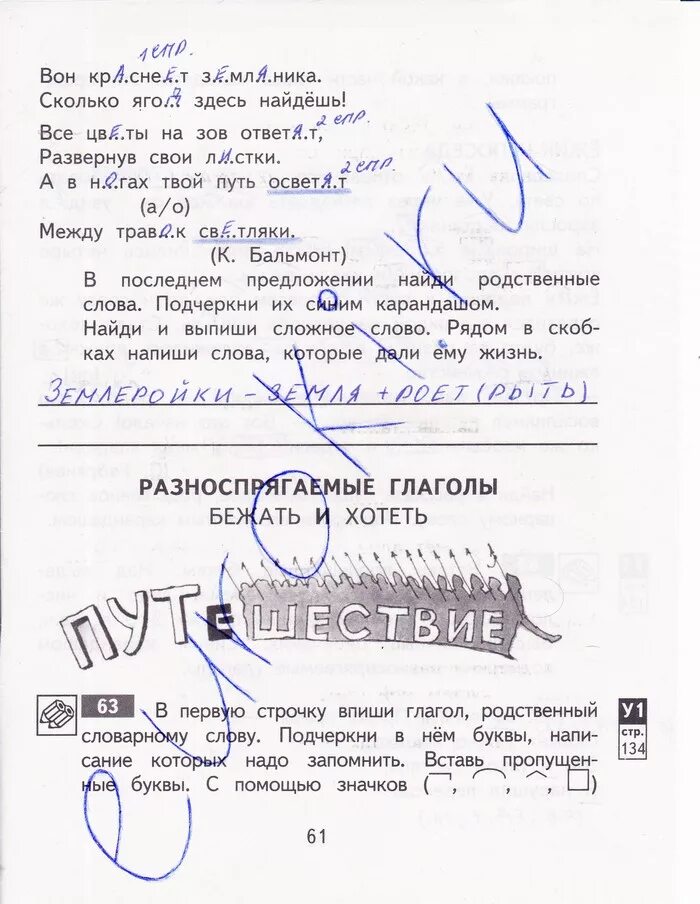 1 СПР.
Вон крА.снеЕ.т зЕ.млЯ.ника.
Сколько ягоД здесь найдёшь!
2 СПР.
Все цвЕ.ты на зов ответЯ.т,
Развернув свои лИ.стки.
2 СПР
А в нО.гах твой путь осветЯ.т
(а/о)
Между травО.к свЕ.тляки.
(К. Бальмонт)
В последнем предложении найди родственные
слова. Подчеркни их синим карандашом.
Найди и выпиши сложное слово. Рядом в скоб-
ках напиши слова, которые дали ему жизнь.
ЗЕМЛЕРОЙКИ – ЗЕМЛЯ + РОЕТ (РЫТЬ)
РАЗНОСПРЯГАЕМЫЕ ГЛАГОЛЫ
БЕЖАТЬ И ХОТЕТЬ
ПУТЕШЕСТВИЕ
63 В первую строчку впиши глагол, родственный
словарному слову. Подчеркни в нём буквы, напи-
сание которых надо запомнить. Вставь пропущен-
ные буквы. С помощью значков (¬, ⌒, ^, □)
У1
стр.
134
61